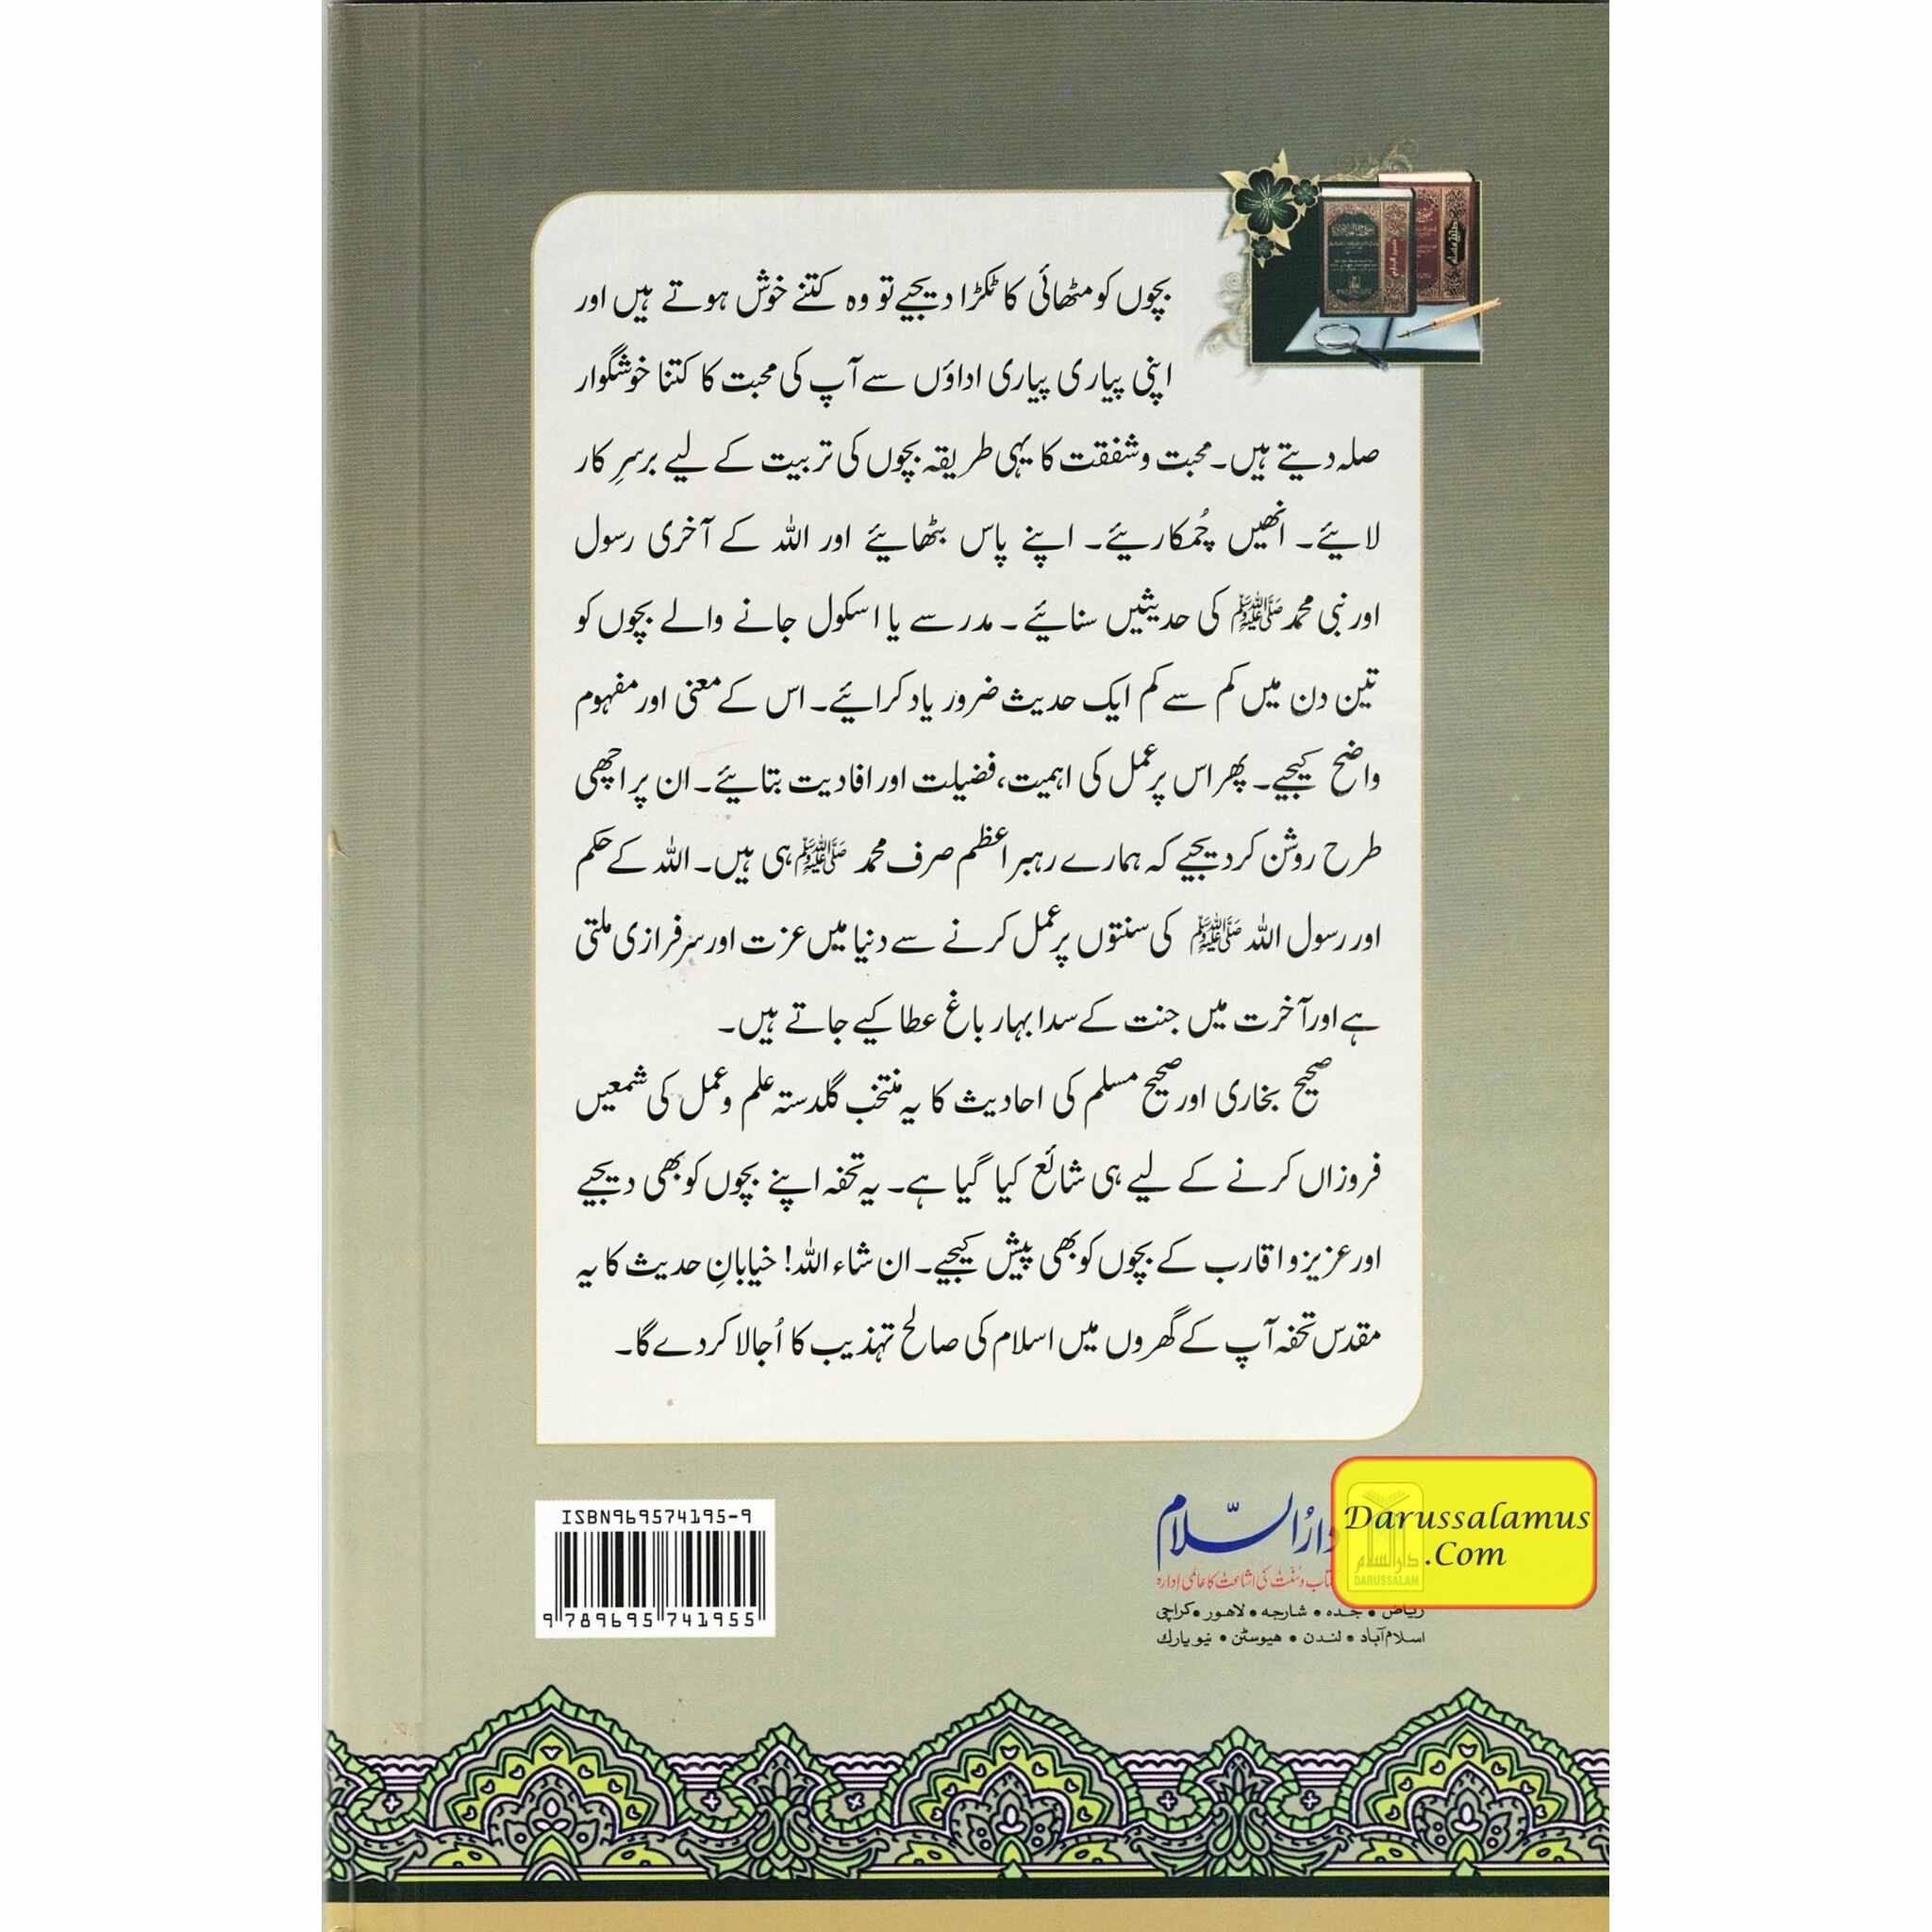 بچوں کو مٹھائی کا ٹکڑا دیجیے تو وہ کتنے خوش ہوتے ہیں اور
اپنی پیاری پیاری اداؤں سے آپ کی محبت کا کتنا خوشگوار
صلہ دیتے ہیں۔ محبت و شفقت کا یہی طریقہ بچوں کی تربیت کے لیے برسرِ کار
لائیے۔ انھیں چُمکاریئے۔ اپنے پاس بٹھایئے اور اللہ کے آخری رسول
اور نبی محمد ﷺ کی حدیثیں سنائیے۔ مدرسے یا اسکول جانے والے بچوں کو
تین دن میں کم سے کم ایک حدیث ضرور یاد کرائیے۔ اس کے معنی اور مفہوم
واضح کیجیے۔ پھر اس پر عمل کی اہمیت، فضیلت اور افادیت بتایئے۔ ان پر اچھی
طرح روشن کر دیجیے کہ ہمارے رہبر اعظم صرف محمد ﷺ ہی ہیں۔ اللہ کے حکم
اور رسول اللہ ﷺ کی سنتوں پر عمل کرنے سے دنیا میں عزت اور سرفرازی ملتی
ہے اور آخرت میں جنت کے سدا بہار باغ عطا کیے جاتے ہیں۔
صحیح بخاری اور صحیح مسلم کی احادیث کا یہ منتخب گلدستہ علم و عمل کی شمعیں
فروزاں کرنے کے لیے ہی شائع کیا گیا ہے۔ یہ تحفہ اپنے بچوں کو بھی دیجیے
اور عزیز و اقارب کے بچوں کو بھی پیش کیجیے۔ ان شاء اللہ! خیابانِ حدیث کا یہ
مقدس تحفہ آپ کے گھروں میں اسلام کی صالح تہذیب کا اُجالا کر دے گا۔
ISBN969574195-9
9 789695 741955
دارُالسّلام
کتاب و سنت کی اشاعت کا عالمی ادارہ
ریاض • جدہ • شارجہ • لاہور • کراچی
اسلام آباد • لندن • ھیوسٹن • نیو یارک
Darussalamus
.Com
دارالسلام
DARUSSALAM